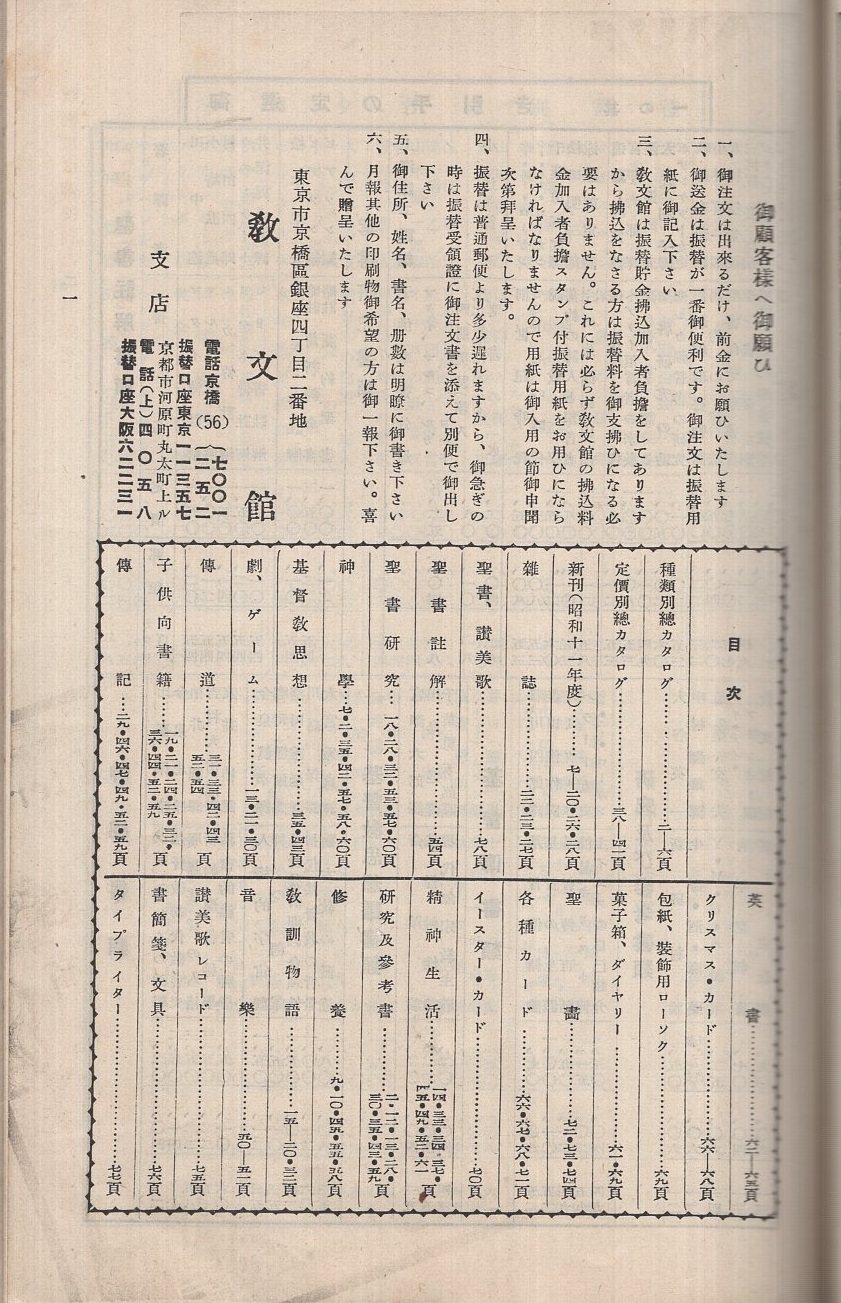 御顧客樣へ御願ひ
一、御注文は出來るだけ、前金にお願ひいたします
二、御送金は振替が一番御便利です。御注文は振替用
紙に御記入下さい
三、敎文館は振替貯金拂込加入者負擔をしてあります
から拂込をなさる方は振替料を御支拂ひになる必
要はありません。これには必らず敎文館の拂込料
金加入者負擔スタンプ付振替用紙をお用ひになら
なければなりませんので用紙は御入用の節御申聞
次第拜呈いたします。
四、振替は普通郵便より多少遲れますから、御急ぎの
時は振替受領證に御注文書を添えて別便で御出し
下さい
五、御住所、姓名、書名、册數は明瞭に御書き下さい
六、月報其他の印刷物御希望の方は御一報下さい。喜
んで贈呈いたします
東京市京橋區銀座四丁目二番地
敎文館
電話京橋(56){七〇〇一 二五二
振替口座東京一一三五七
支店
京都市河原町丸太町上ル
電話(上)四〇五八
振替口座大阪六二二三一
一
目次
種類別總カタログ……二—六頁
定價別總カタログ……三八—四一頁
新刊(昭和十一年度)……七—二〇・二六・二八頁
雜誌……二二・二三・二七頁
聖書、讃美歌……七八頁
聖書註解……五四頁
聖書硏究……一八・二八・三二・五三・五七・六〇頁
神學……七・二・三五・四二・五七・五八・六〇頁
基督敎思想……三五・四三頁
劇、ゲーム……一三・二一・三〇頁
傳道……三一・三三・四二・四三 五二・五四頁
子供向書籍……一九・二一・二四・二五・三二・ 三六・四四・五二・五九頁
傳記……二九・四六・四七・四九・五二・五九頁
英書……六二—六五頁
クリスマス・カード……六六—六八頁
包紙、裝飾用ローソク……六九頁
菓子箱、ダイヤリー……六一・六九頁
聖畵……七二・七三・七四頁
各種カード……六六・六七・六八・七一頁
イースター・カード……七〇頁
精神生活……一四・三三・三四・三七・ 四五・四九・五二・六一頁
硏究及參考書……二・一二・一三・二八・ 三〇・三五・四三・五九頁
修養……九・一〇・四五・五五・五八頁
敎訓物語……一五—二〇・三二頁
音樂……五〇—五一頁
讃美歌レコード……七五頁
書簡箋、文具……七六頁
タイプライター……七七頁